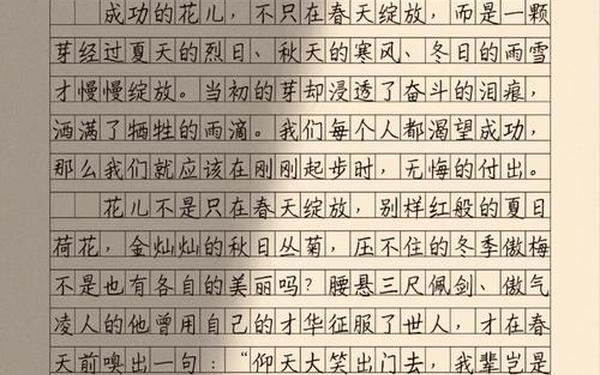 成功的花儿，不只在春天绽放，而是一颗
芽经过夏天的烈日、秋天的寒风、冬日的雨雪
才慢慢绽放。当初的芽却浸透了奋斗的泪痕，
洒满了牺牲的雨滴。我们每个人都渴望成功，
那么我们就应该在刚刚起步时，无悔的付出。
花儿不是只在春天绽放，别样红般的夏日
荷花，金灿灿的秋日丛菊，压不住的冬季傲梅
不是也有各自的美丽吗？腰悬三尺佩剑、傲气
凌人的他曾用自己的才华征服了世人，才在春
天前嗅出一句：“仰天大笑出门去，我辈岂是